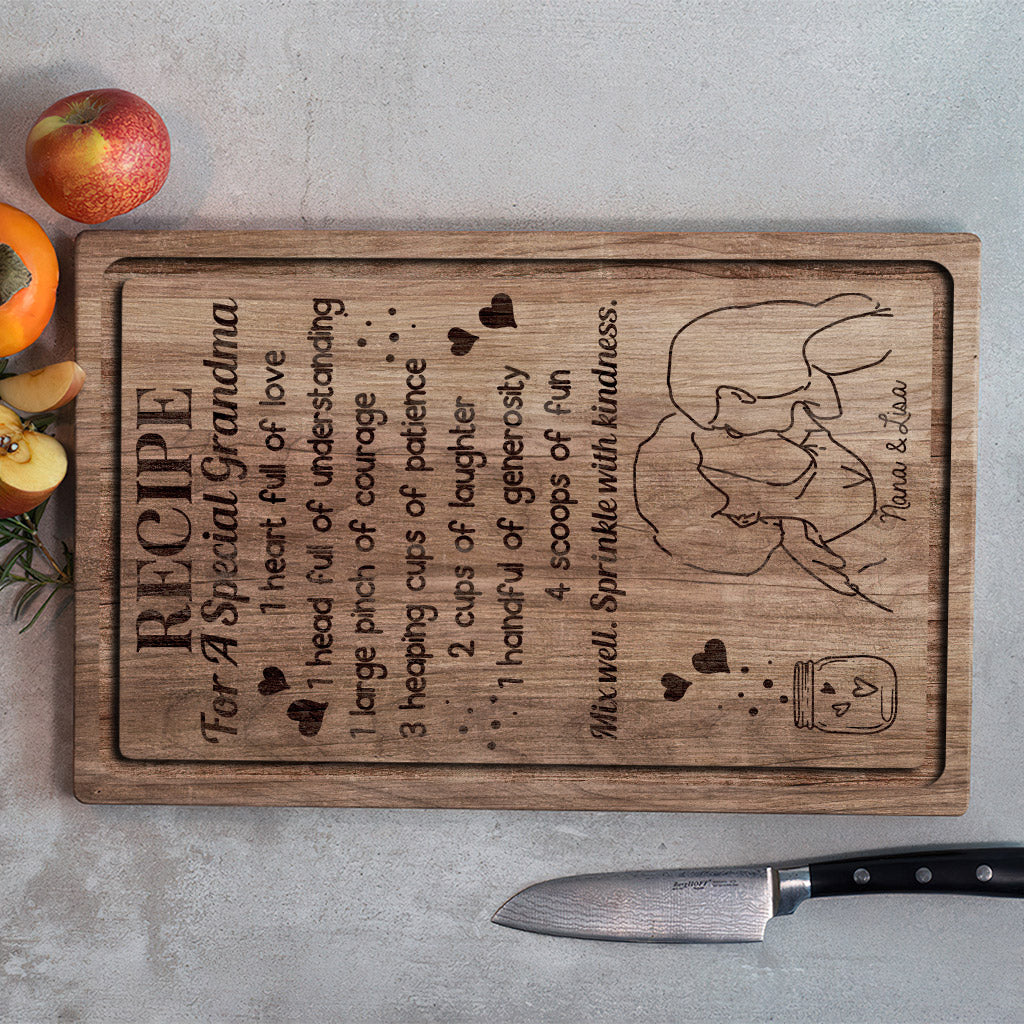 RECIPE
For A Special Grandma
1 heart full of love
1 head full of understanding
1 large pinch of courage
3 heaping cups of patience
2 cups of laughter
1 handful of generosity
4 scoops of fun
Mix well. Sprinkle with kindness.
Nana & Lisa
BergHOFF